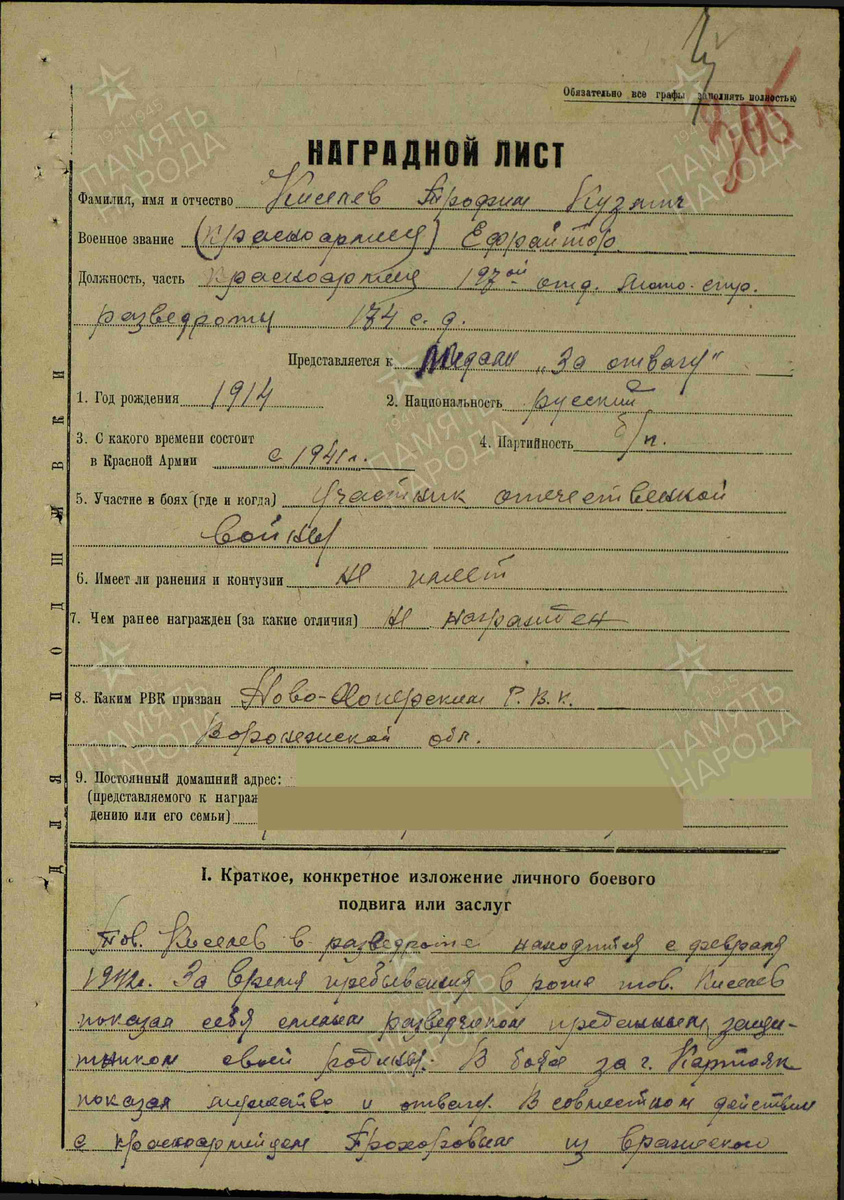 Обязательно все графы заполнять полностью
305
НАГРАДНОЙ ЛИСТ
Фамилия, имя и отчество Киселев Трофим Кузмич
Военное звание (красноармеец) Ефрайтор
Должность, часть красноармеец 197ой отд. мото-стр.
разведроты 174 с. д.
Представляется к Медали „За отвагу"
1. Год рождения 1914
2. Национальность русский
3. С какого времени состоит
в Красной Армии с 1941 г.
4. Партийность б/п.
5. Участие в боях (где и когда) Участник отечественной
войны
6. Имеет ли ранения и контузии не имеет
7. Чем ранее награжден (за какие отличия) не
8. Каким РВК призван Ново-Хоперским Р.В.К.
Воронежской обл.
9. Постоянный домашний адрес:
(представляемого к награж
дению или его семьи)
I. Краткое, конкретное изложение личного боевого
подвига или заслуг
Тов. Киселев в разведроте находится с февраля
1942г. За время пребывания в роте тов. Киселев
показал себя смелым разведчиком преданным защи-
тником своей родины. В боях за г. Каротояк
показал мужество и отвагу. В совместном действии
с красноармейцем Прохоровым из вражеского
ДЛЯ ПОДШИВКИ
1941-1945
ПАМЯТЬ
НАРОДА